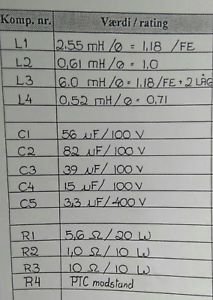 Komp. nr. Værdi / rating
L1 2.55 mH/ø = 1,18 /FE
L2 0,61 mH/ø = 1.0
L3 6.0 mH/ø = 1,18/FE + 2 LÅG
L4 0,52 mH/ø = 0.71
C1 56 µF/ 100 V
C2 82 µF/ 100 V
C3 39 µF/ 100 V
C4 15 µF/ 100 V
C5 3,3 µF/400 V
R1 5,6 Ω/ 20 W
R2 1,0 Ω/ 10 W
R3 10 Ω/ 10 W
R4 PTC modstand